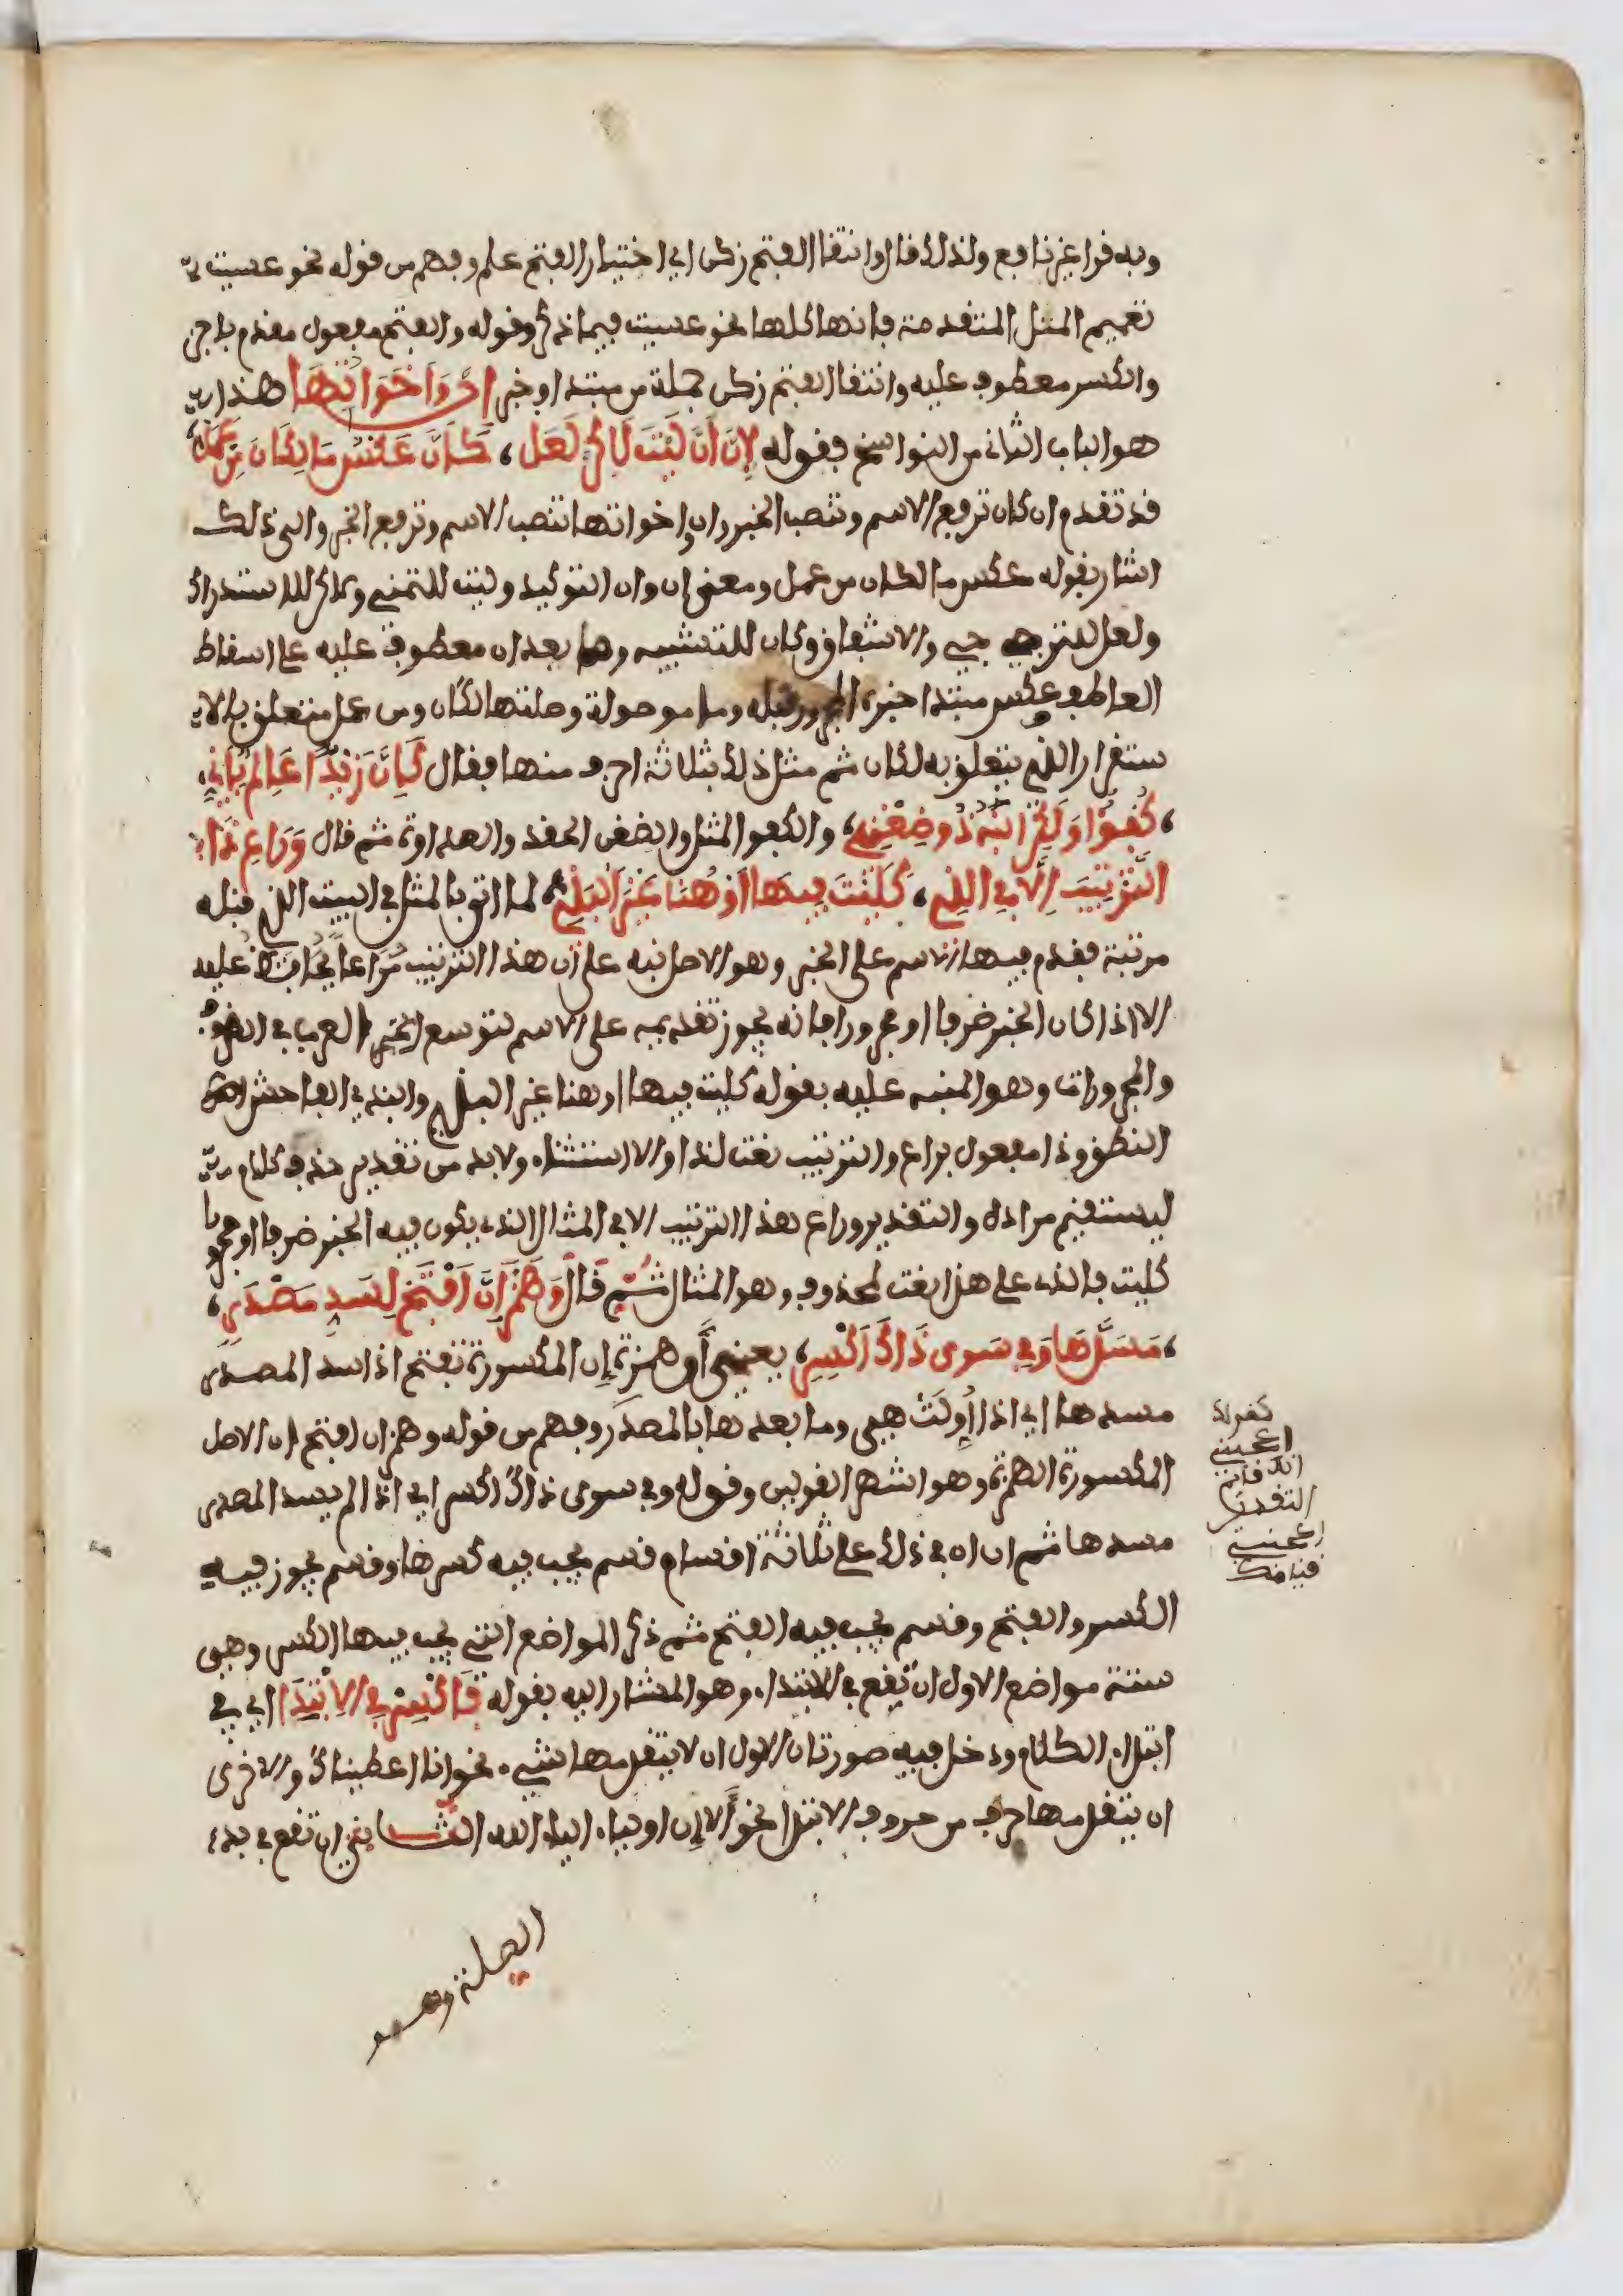 وبه قرا غير نافع ولذلك قال وانتقا الفتح زكن اي اختيار الفتح علم وفهم من قوله نحو عسيت
تعميم المثل المتقدمة فانها كلها نحو عسيت فيما ذكر وقوله والفتح مفعول مقدم باجز
والكسر معطوف عليه وانتقا الفتح زكن جملة من مبتدا وخبر إن وأخواتها هذا
هو الباب الثاني من النواسخ فقوله لإن أن ليت لاكن لعل، كأن عكس ما لكان من عمل،
قد تقدم ان كان ترفع الاسم وتنصب الخبر وان واخواتها تنصب الاسم وترفع الخبر والى ذلك
اشار بقوله عكس ما لكان من عمل ومعنى إن وان التوكيد وليت للتمني ولاكن للاستدراك
ولعل للترجي والاشفاق وكان للتشبيه وما بعد ان معطوف عليه على اسقاط
العاطف وعكس مبتدا خبره المجرور قبله وما موصولة وصلتها لكان ومن عمل متعلق بالا
ستقرار الذي يتعلق به لكان ثم مثل ذلك بثلاثة احرف منها فقال كإن زيدا عالم بأني،
، كفؤا ولكن ابنه ذو ضغن، والكفو المثل والضغن الحقد والعداوة ثم قال وراع ذا
الترتيب إلا في الذي، كليت فيها أو هنا غير البذي، لما اتى بالمثل في البيت الذي قبله
مرتبة فقدم فيها الاسم على الخبر وهو الاصل نبه على ان هذا الترتيب مراعا يحافظ عليه
الا اذا كان الخبر ضرفا او مجرورا فانه يجوز تقديمه على الاسم لتوسع العرب في الضروف
والمجرورات وهو المنبه عليه بقوله كليت فيها او هنا غير البذي والبذي الفاحش
النطق وذا مفعول براع والترتيب نعت لذا والا استثناء ولابد من تقدير حذف كلام
ليستقيم مراده والتقدير وراع هذا الترتيب الا في المثال الذي يكون فيه الخبر ضرفا او مجرورا
كليت فالذي على هذا نعت لمحذوف وهو المثال ثم قال وهمز إن افتح لسد مصدر،
، مسدها وفي سوى ذاك اكسر، يعني أن همزة إن المكسورة تفتح اذا سد المصدر
مسدها اي اذا أولت هي وما بعدها بالمصدر وفهم من قوله وهمز ان افتح ان الاصل
المكسورة الهمزة وهو اشهر القولين وقوله وفي سوى ذاك اكسر اي اذا لم يسد المصدر
مسدها ثم ان ان في ذلك على ثلاثة اقسام قسم يجب فيه كسرها وقسم يجوز فيه
الكسر والفتح وقسم يجب فيه الفتح ثم ذكر المواضع التي يجب فيها الكسر وهي
ستة مواضع الاول ان تقع في الابتداء وهو المشار اليه بقوله فاكسر في الابتدا اي في
ابتداء الكلام ودخل فيه صورتان الاول ان لا يتقدمها شيء نحو انا اعطيناك والاخرى
ان يتقدمها حرف من حروف الابتدا نحو ألا إن اولياء الله الثاني ان تقع في بدء
الصلة وهو
كقولك
اعجبني
انك قائم
التقدير
اعجبني
قيامك